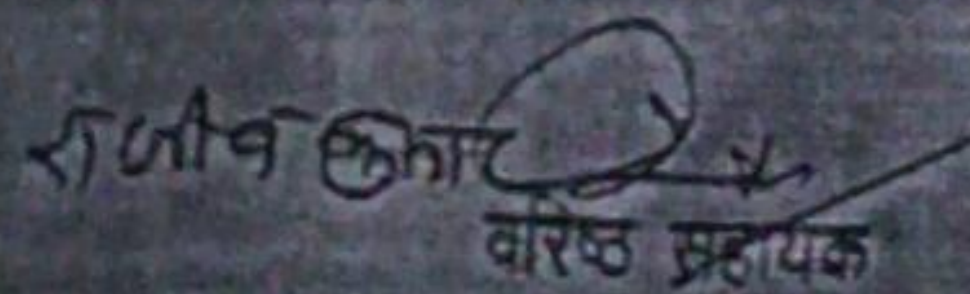 राजीव कुमार
वरिष्ठ सहायक